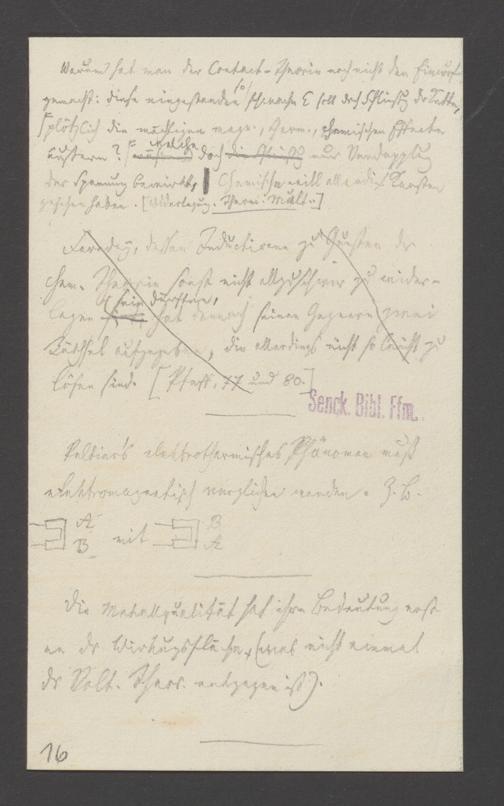 Warum hat man der Contact-Theorie noch nicht den Einwurf
gemacht: diese eingestandene so schwache E soll doch Schließung der Kette,
plötzlich die mächtigen magn., therm., chemischen Effecte
äussern? welche doch nur Verdopplung
der Spannung bewirkt, Chemische will allerdings
gesehen haben. [Widerlegung. Therm. Mult..]
Faraday, dessen Inductionen zu Gunsten der
chem. Theorie sonst nicht allzuschwer zu wider-
legen sein dürften, hat dennoch seinen Gegnern zwei
Räthsel aufgegeben, die allerdings nicht so leicht zu
lösen sind. [Pfaff, 77 und 80.]
Senck. Bibl. Ffm.
Peltier's elektrothermisches Phänomen muß
elektromagnetisch verglichen werden. Z. B.
A B mit B A
Die Metallqualität hat ihre Bedeutung erst
an der Wirkungsfläche, (was nicht einmal
der Volt. Theor. entgegen ist).
16